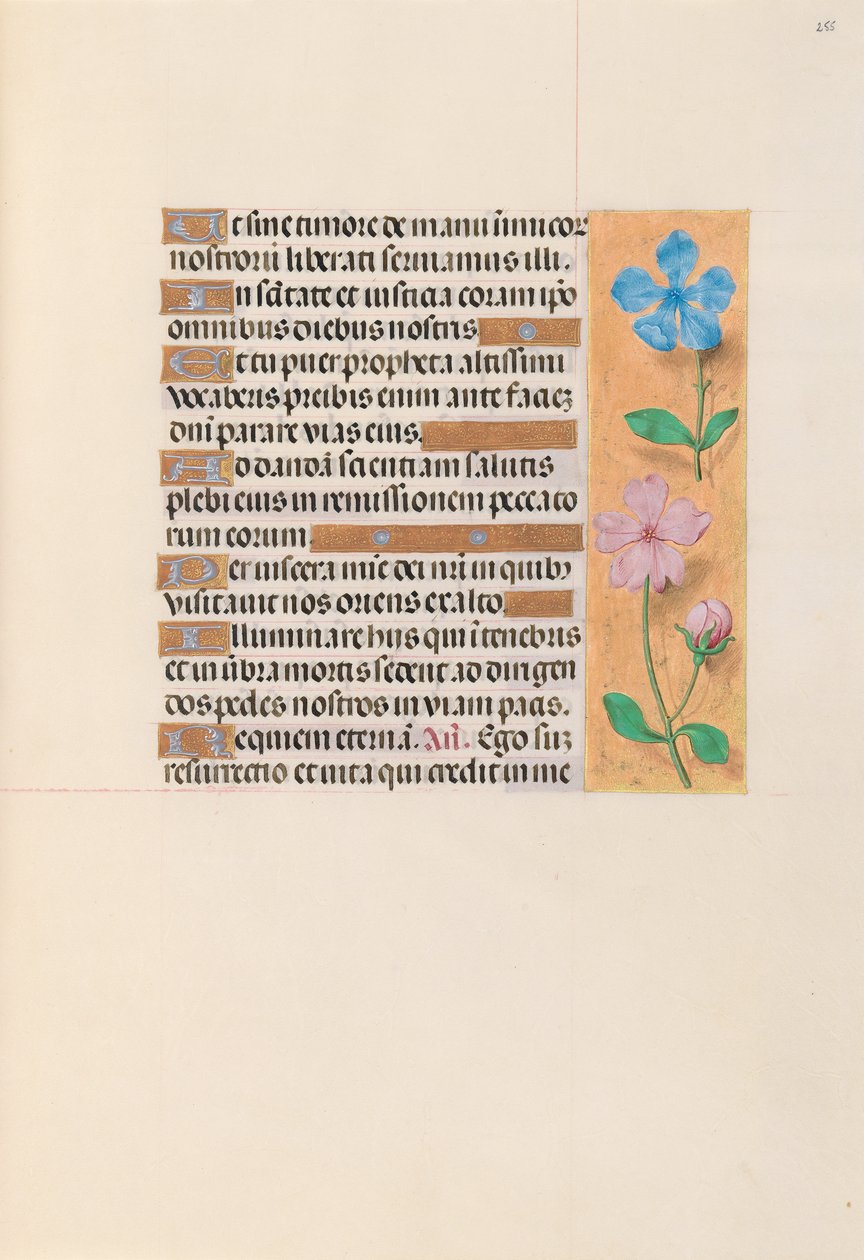 255
Ut sine timore de manu inimicor
nostrorū liberati seruiamus illi.
In sc̄itate et iusticia coram ip̄o
omnibus diebus nostris.
Et tu puer propheta altissimi
vocaberis preibis enim ante faciez
dn̄i parare vias eius.
Ad dandā scientiam salutis
plebi eius in remissionem peccato
rum eorum.
Per viscera mīe dei nr̄i in quibꝰ
visitauit nos oriens ex alto.
Illuminare hijs qui ī tenebris
et in ūbra mortis sedent ad dirigen
dos pedes nostros in viam pacis.
Requiem eternā. An̄. Ego suz
resurrectio et vita qui credit in me